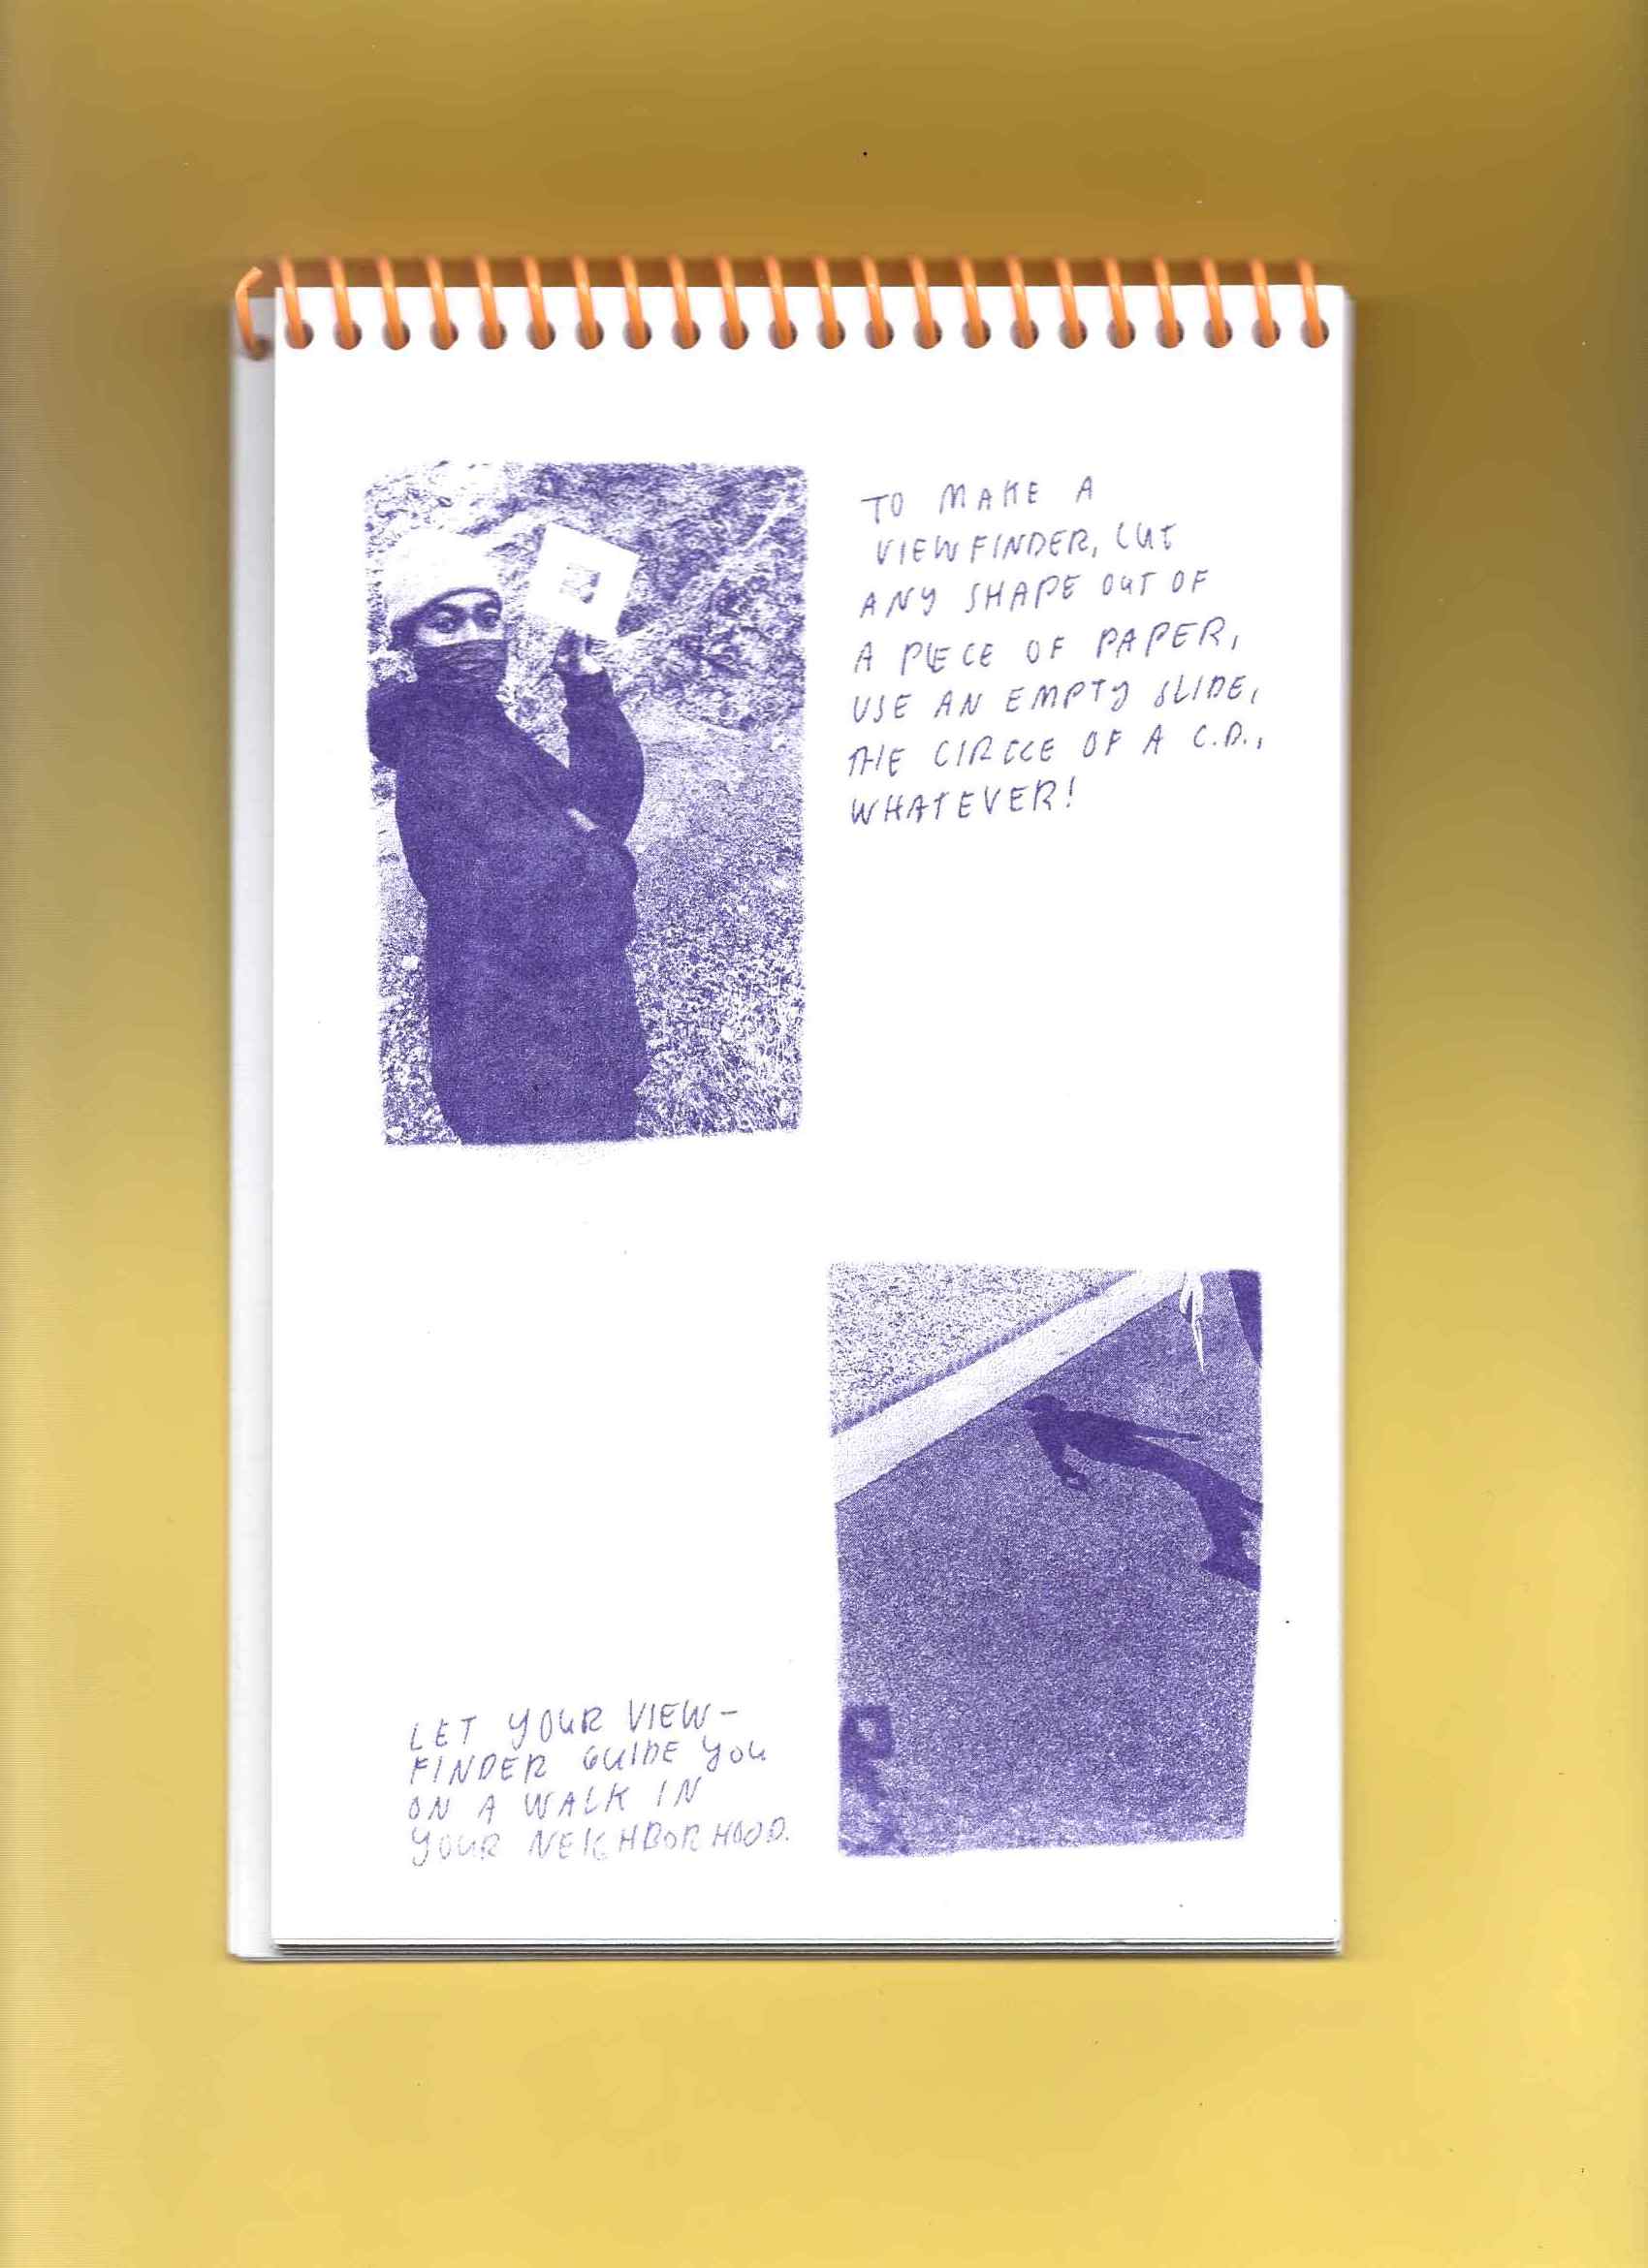 TO MAKE A
VIEWFINDER, CUT
ANY SHAPE OUT OF
A PIECE OF PAPER,
USE AN EMPTY SLIDE,
THE CIRCLE OF A C.D.,
WHATEVER!
LET YOUR VIEW-
FINDER GUIDE YOU
ON A WALK IN
YOUR NEIGHBORHOOD.